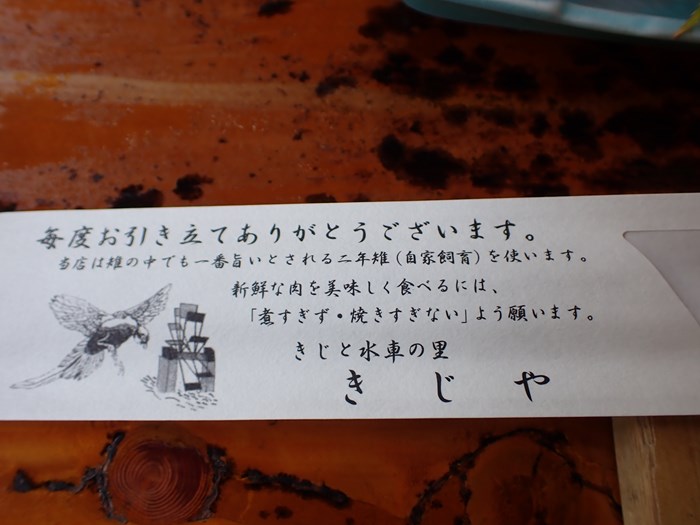 毎度お引き立てありがとうございます。
当店は雉の中でも一番旨いとされる二年雉(自家飼育)を使います。
新鮮な肉を美味しく食べるには、
「煮すぎず・焼きすぎない」よう願います。
きじと水車の里
きじや